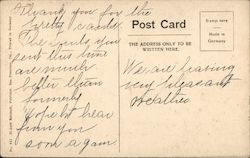 Thank you for the
pretty cards.
The cards you
sent this time
are much
better than
formerly
Hope to hear
from you
soon again
Post Card
THE ADDRESS ONLY TO BE
WRITTEN HERE.
Stamp here
Made in
Germany
We are having
very pleasant
weather